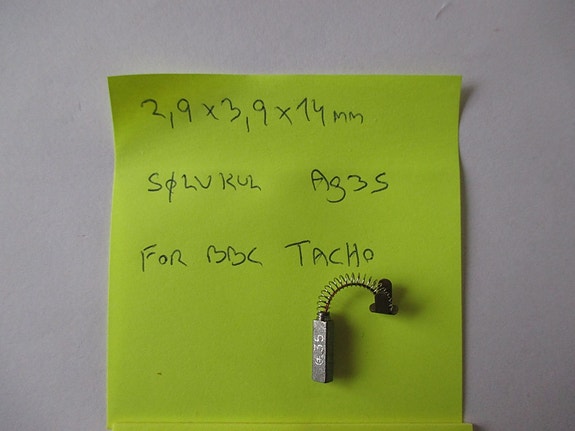 2,9 x 3,9 x 14 mm
SØLVKUL Ag35
FOR BBC TACHO
G35